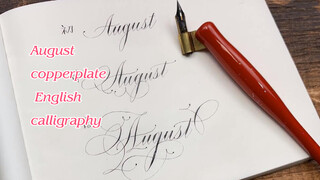 初 August
August
August
August
copperplate
English
calligraphy